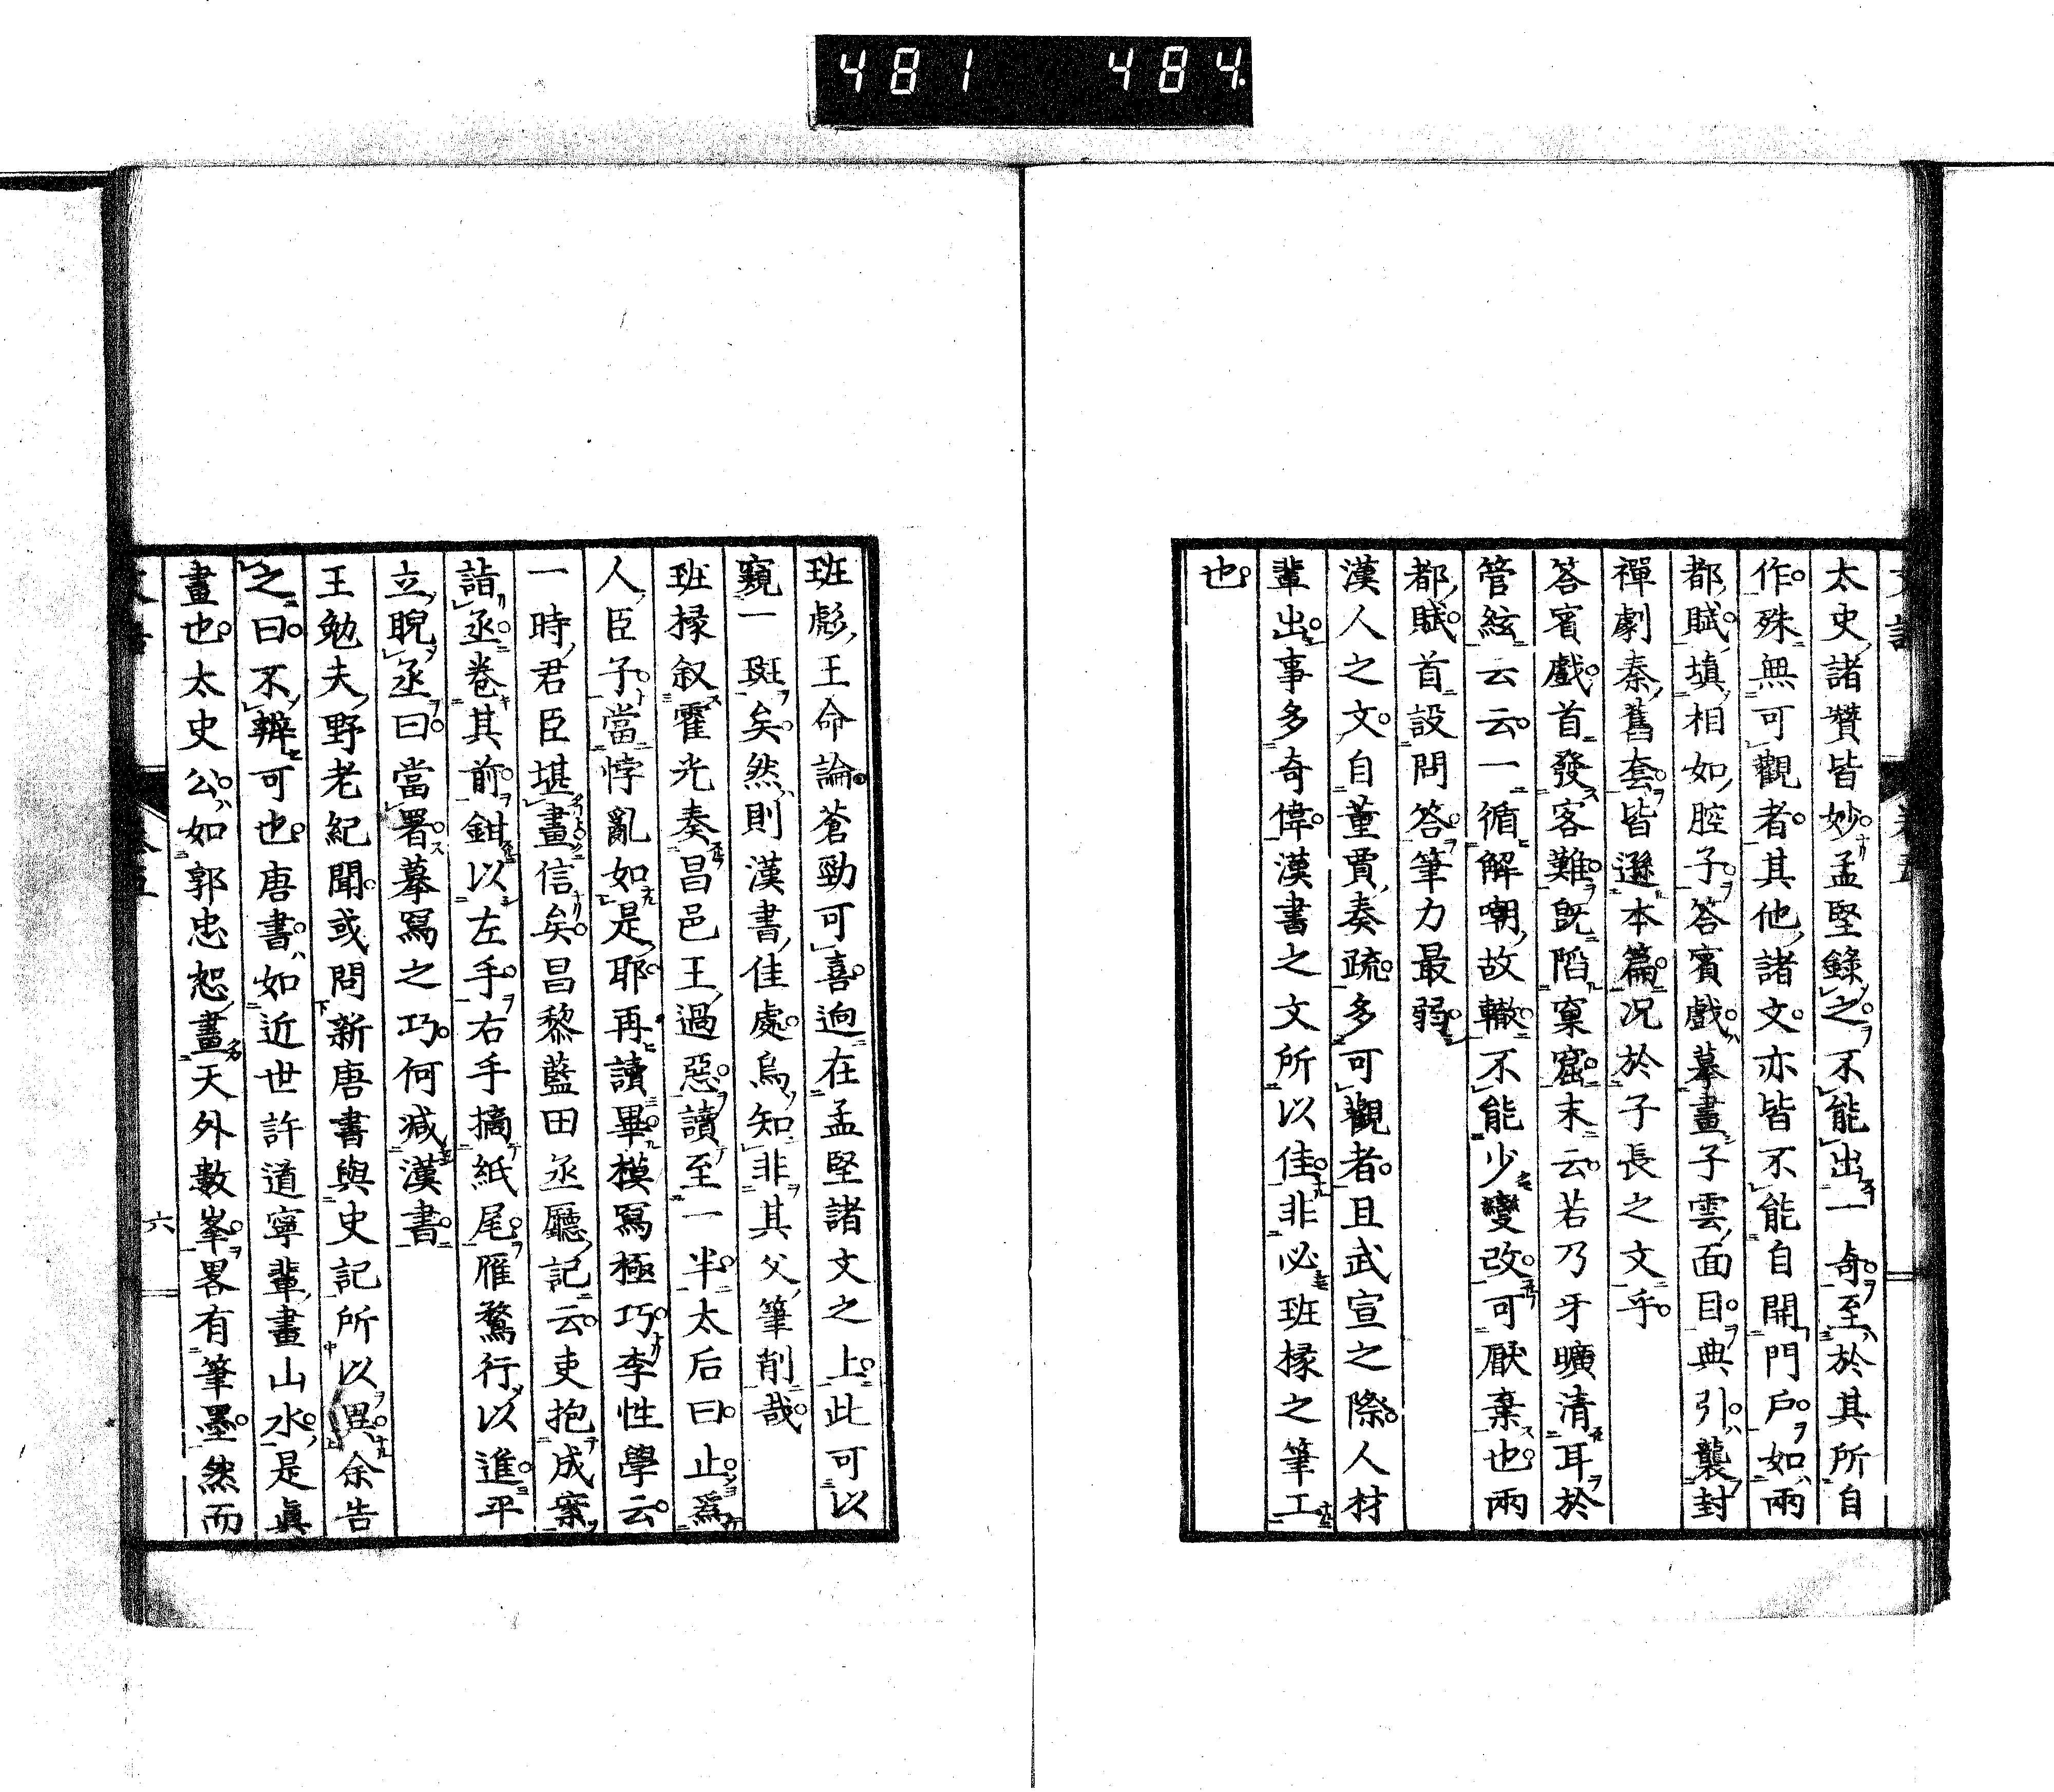 481 484
太史諸贊皆妙孟堅錄之不能出一奇至於其所自
作殊無可觀者其他諸文亦皆不能自開門戶如兩
都賦塡相如腔子答賓戲摹畫子雲面目典引襲封
禪劇秦舊套皆遜本篇况於子長之文乎
答賓戲首發客難既陷窠窟末云若乃牙曠清耳於
管絃云云一循解嘲故轍不能少變改可厭棄也兩
都賦首設問答筆力最弱
漢人之文自董賈奏疏多可觀者且武宣之際人材
輩出事多奇偉漢書之文所以佳非必班掾之筆工
也
班彪王命論蒼勁可喜逈在孟堅諸文之上此可以
窺一斑矣然則漢書佳處烏知非其父筆削哉
班掾叙霍光奏昌邑王過惡讀至一半太后曰止爲
人臣子當悖亂如是耶再讀畢模寫極巧李性學云
一時君臣堪畫信矣昌黎藍田丞廳記云吏抱成案
詣丞卷其前鉗以左手右手摘紙尾雁鶩行以進平
立睨丞曰當署摹寫之巧何减漢書
王勉夫野老紀聞或問新唐書與史記所以異余告
之曰不辨可也唐書如近世許道寧輩畫山水是眞
畫也太史公如郭忠恕畫天外數峯畧有筆墨然而
六